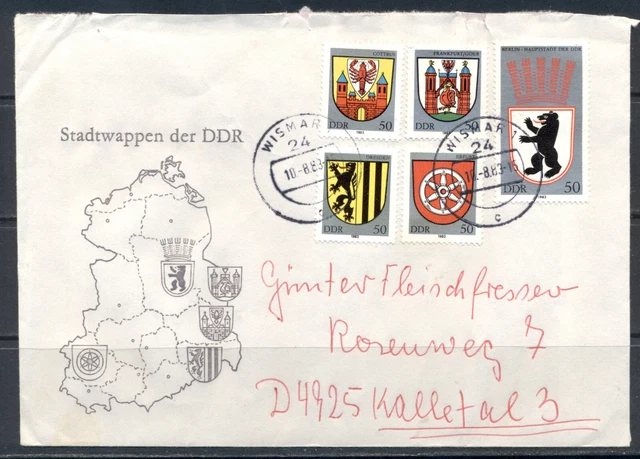 COTTBUS
DDR 1983 50
FRANKFURT/ODER
DDR 50
BERLIN - HAUPTSTADT DER DDR
DDR 1983 50
Stadtwappen der DDR
WISMAR
24
10.-8.83
c
WISMAR 1
24
10.-8.83-15
c
DRESDEN
DDR 1983 50
ERFURT
DDR 1983 50
Günter Fleischfresser
Rosenweg 7
D4925 Kalletal 3